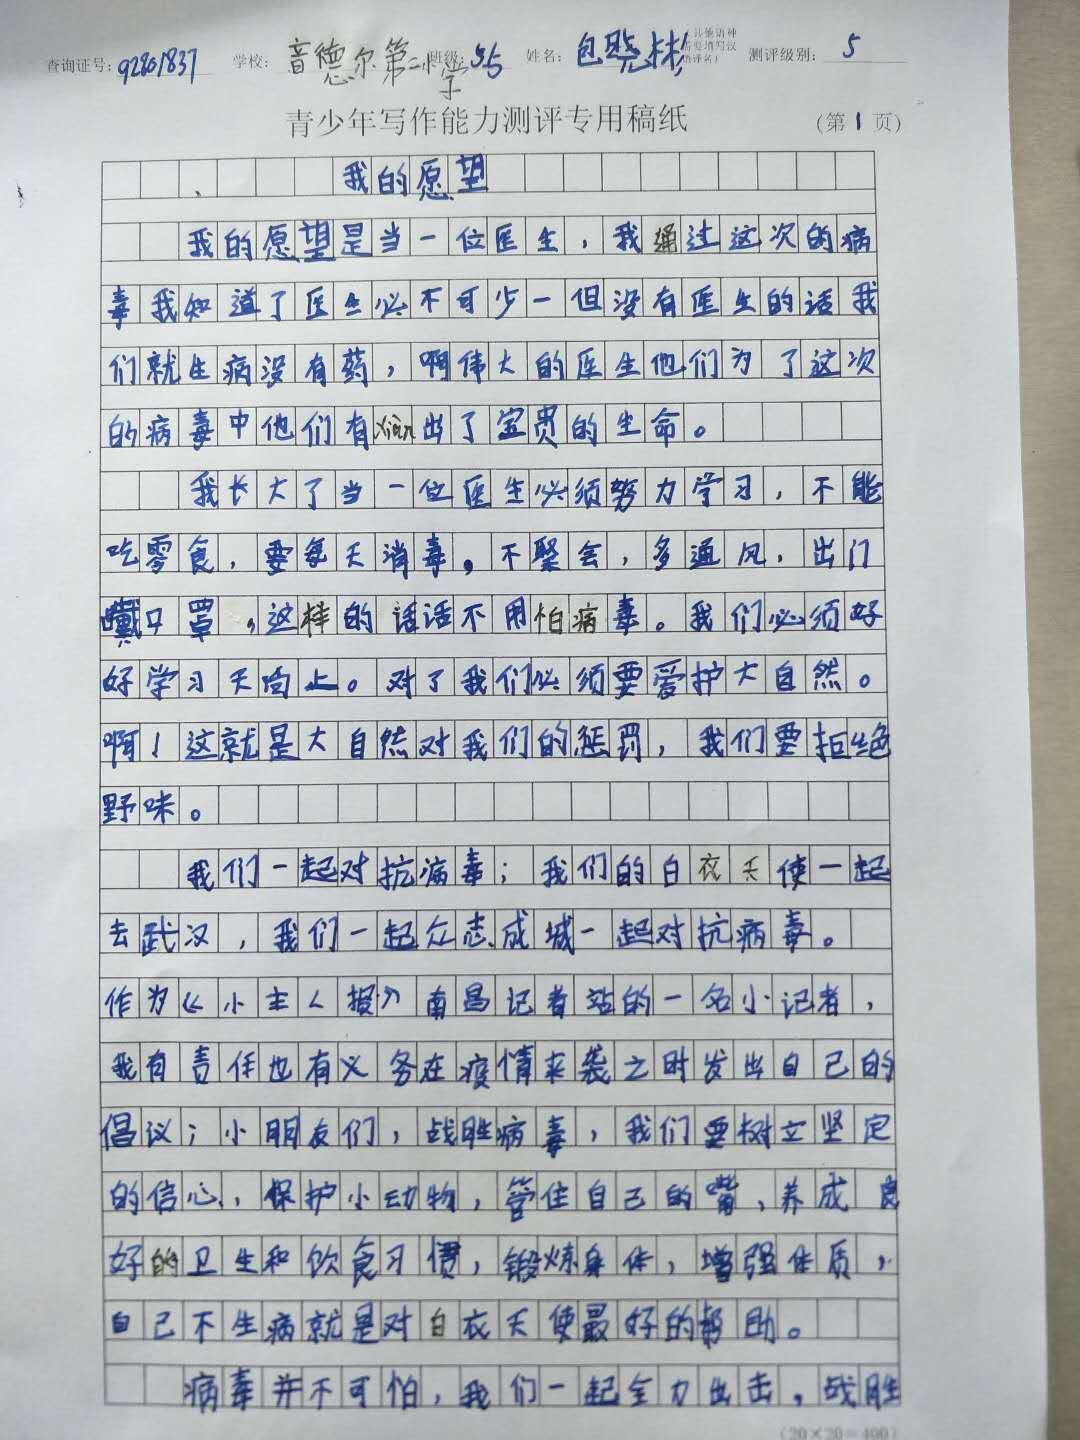 查询证号: 92801837 学校: 音德尔第二小学 班级: 3.5 姓名: 包晓彬 测评级别: 5
青少年写作能力测评专用稿纸 (第 1 页)
我的愿望
我的愿望是当一位医生，我通过这次的病
毒我知道了医生必不可少一但没有医生的话我
们就生病没有药，啊伟大的医生他们为了这次
的病毒中他们有xiàn出了宝贵的生命。
我长大了当一位医生必须努力学习，不能
吃零食，要每天消毒。不聚会，多通风，出门
戴口罩，这样的话话不用怕病毒。我们必须好
好学习天向上。对了我们必须要爱护大自然。
啊！这就是大自然对我们的惩罚，我们要拒绝
野味。
我们一起对抗病毒；我们的白衣天使一起
去武汉，我们一起众志成城一起对抗病毒。
作为《小主人报》南昌记者站的一名小记者，
我有责任也有义务在疫情来袭之时发出自己的
倡议；小朋友们，战胜病毒，我们要树立坚定
的信心、保护小动物，管住自己的嘴、养成良
好的卫生和饮食习惯，锻炼身体，增强体质，
自己不生病就是对白衣天使最好的帮助。
病毒并不可怕，我们一起全力出击，战胜
(20×20=400)